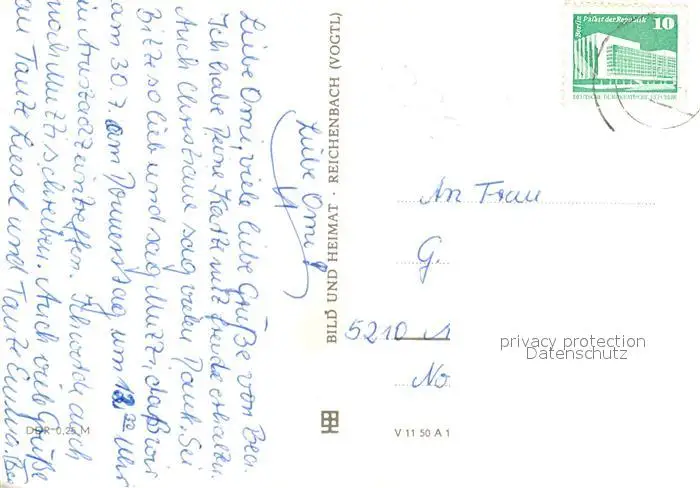 Liebe Omi!
Liebe Omi, viele liebe Grüße von Bea.
Ich habe Deine Karte mit Freude erhalten.
Auch Christiane sag vielen Dank. Sei
Bitte so lieb und sag Mutti, daß wir
am 30.7. am Donnerstag um Uhr
in eintreffen. Ich werde auch
noch Mutti schreiben. Auch viele Grüße
an Tante Liesel und Tante
DDR 0,25 M
BILD UND HEIMAT · REICHENBACH (VOGTL)
V 11 50 A 1
Berlin Palast der Republik 10
DEUTSCHE DEMOKRATISCHE REPUBLIK
An Frau
G.
5210 A
No.
privacy protection
Datenschutz